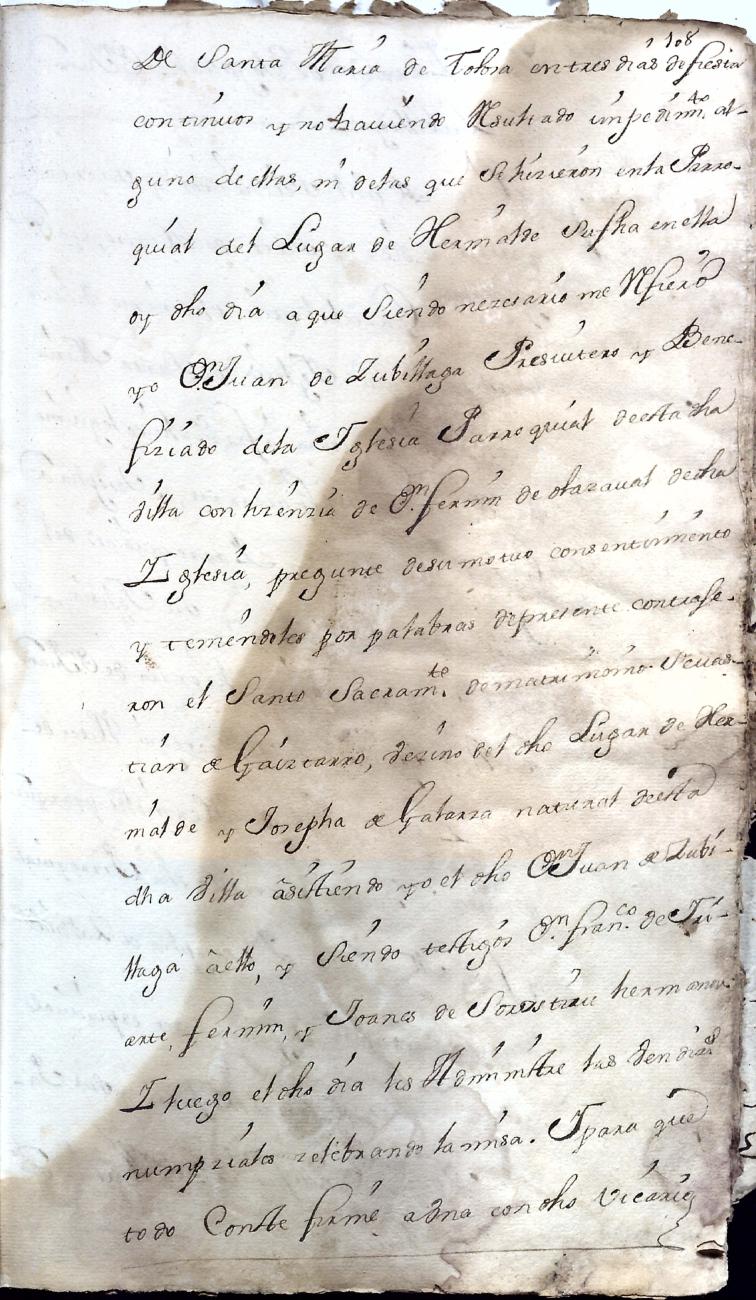 108
De Santa María de Tolosa en tres días de fiesta
continuos y no haviendo Resultado impedim.to al-
guno de ellas, ni delas que se hizieron enla Parro-
quial del Lugar de Hernialde susha en ella
oy dho día a que siendo nezesario me Refiero
yo D.n Juan de Zubillaga Presvitero y Bene-
fiziado dela Iglesia Parroquial de esta dha
Villa con lizenzia de D.n fermin de olazaval de dha
Iglesia, pregunte de su motuo consentimiento
y teniendoles por palabras de presente contraje-
ron el Santo Sacram.to de matrimonio Sevas-
tian de Gaiztarro, vezino del dho Lugar de Her-
nialde y Josepha de Galarza natural de esta
dha Villa asistiendo yo el dho D.n Juan de Zubi-
llaga a ello, y siendo testigos D.n fran.co de Iri-
arte, fermin, y Joanes de hermanos
I luego el dho día les Administre las Bendiz
numpziales zelebrando la missa. I para que
todo Conste firmé a Una con dho Vicario